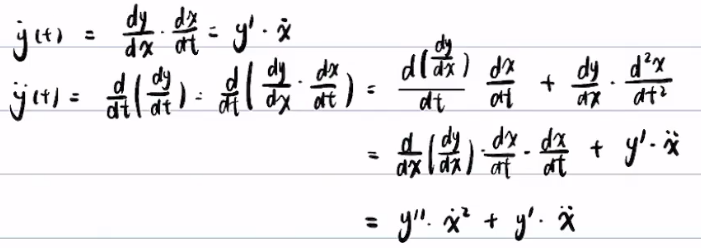 ẏ(t) = dy/dx · dx/dt = y' · ẋ
ÿ(t) = d/dt(dy/dt) = d/dt(dy/dx · dx/dt) = d(dy/dx)/dt dx/dt + dy/dx · d²x/dt²
= d/dx(dy/dx) · dx/dt · dx/dt + y' · ẍ
= y'' · ẋ² + y' · ẍ